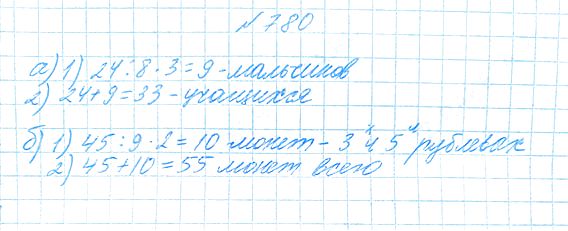 № 780
а) 1) 24 : 8 · 3 = 9 - мальчиков
2) 24 + 9 = 33 - учащихся
б) 1) 45 : 9 · 2 = 10 монет - 3х и 5и рублевах
2) 45 + 10 = 55 монет всего